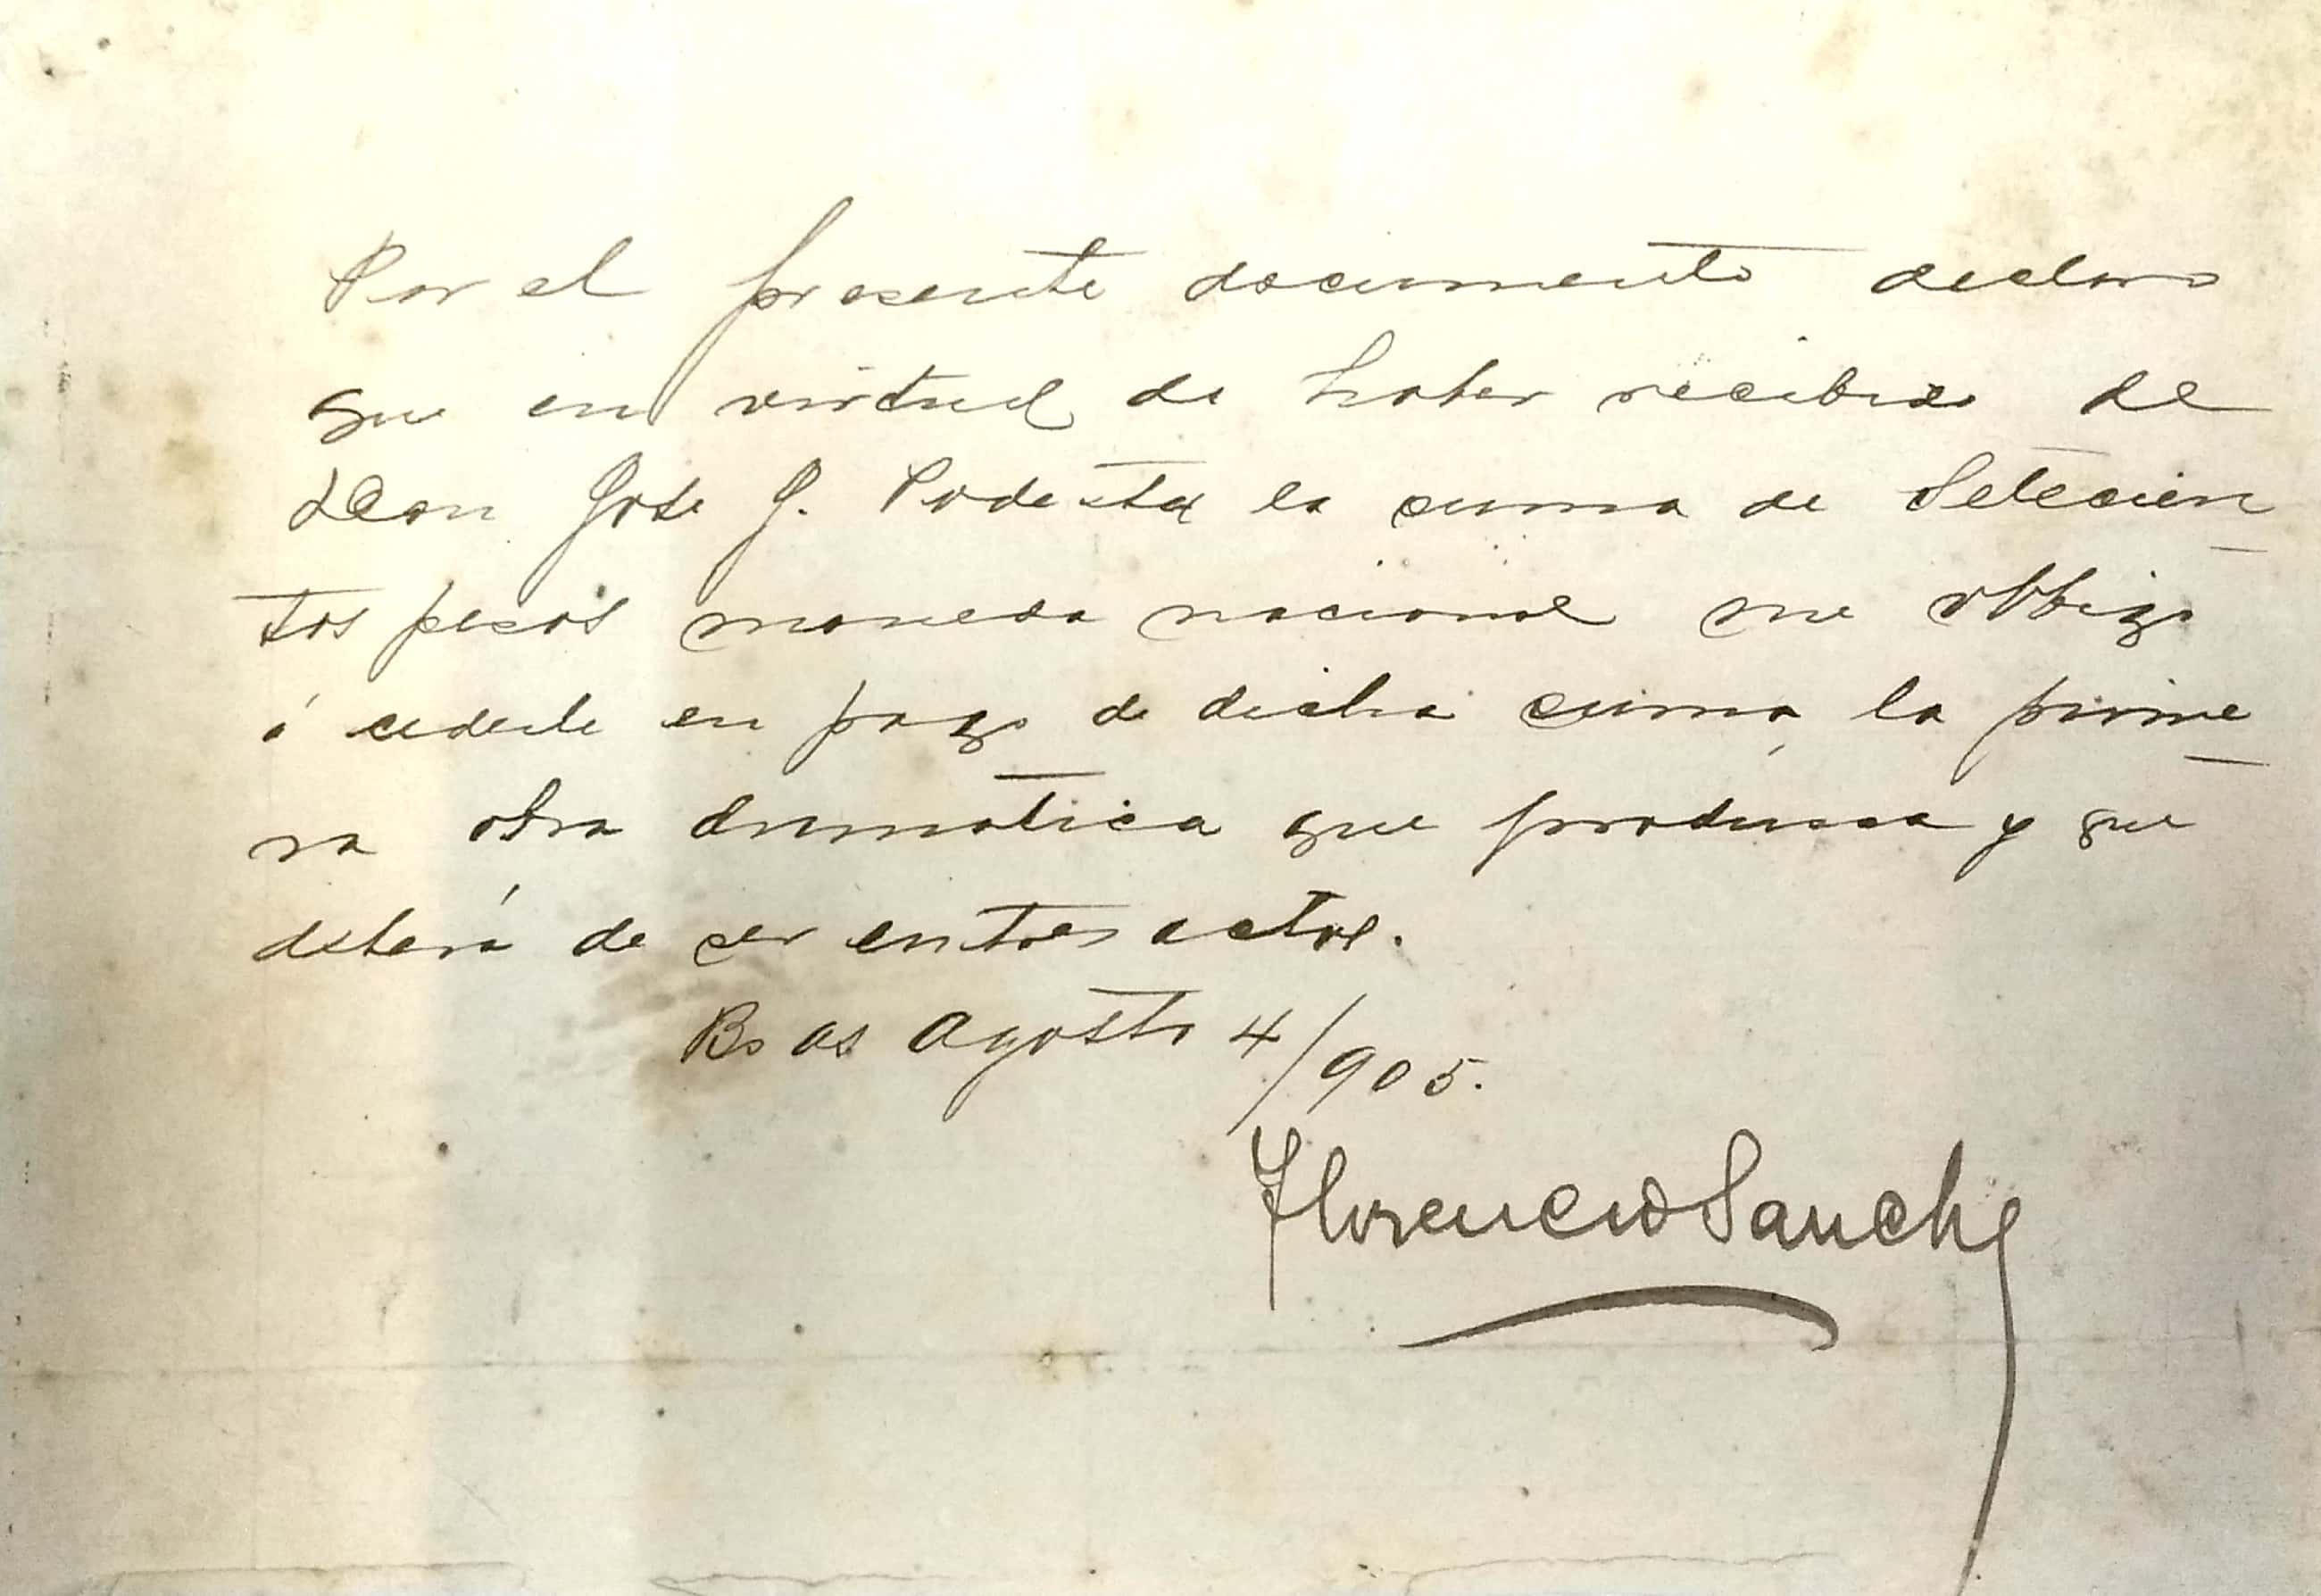 Por el presente documento declaro
que en virtud de haber recibido de
Don José J. Podestá la suma de Setecien
tos pesos moneda nacional me obligo
á cederle en pago de dicha suma, la prime
ra obra dramatica que produzca y que
deberá de ser en tres actos.
Bs as Agosto 4/905.
Florencio Sanchez